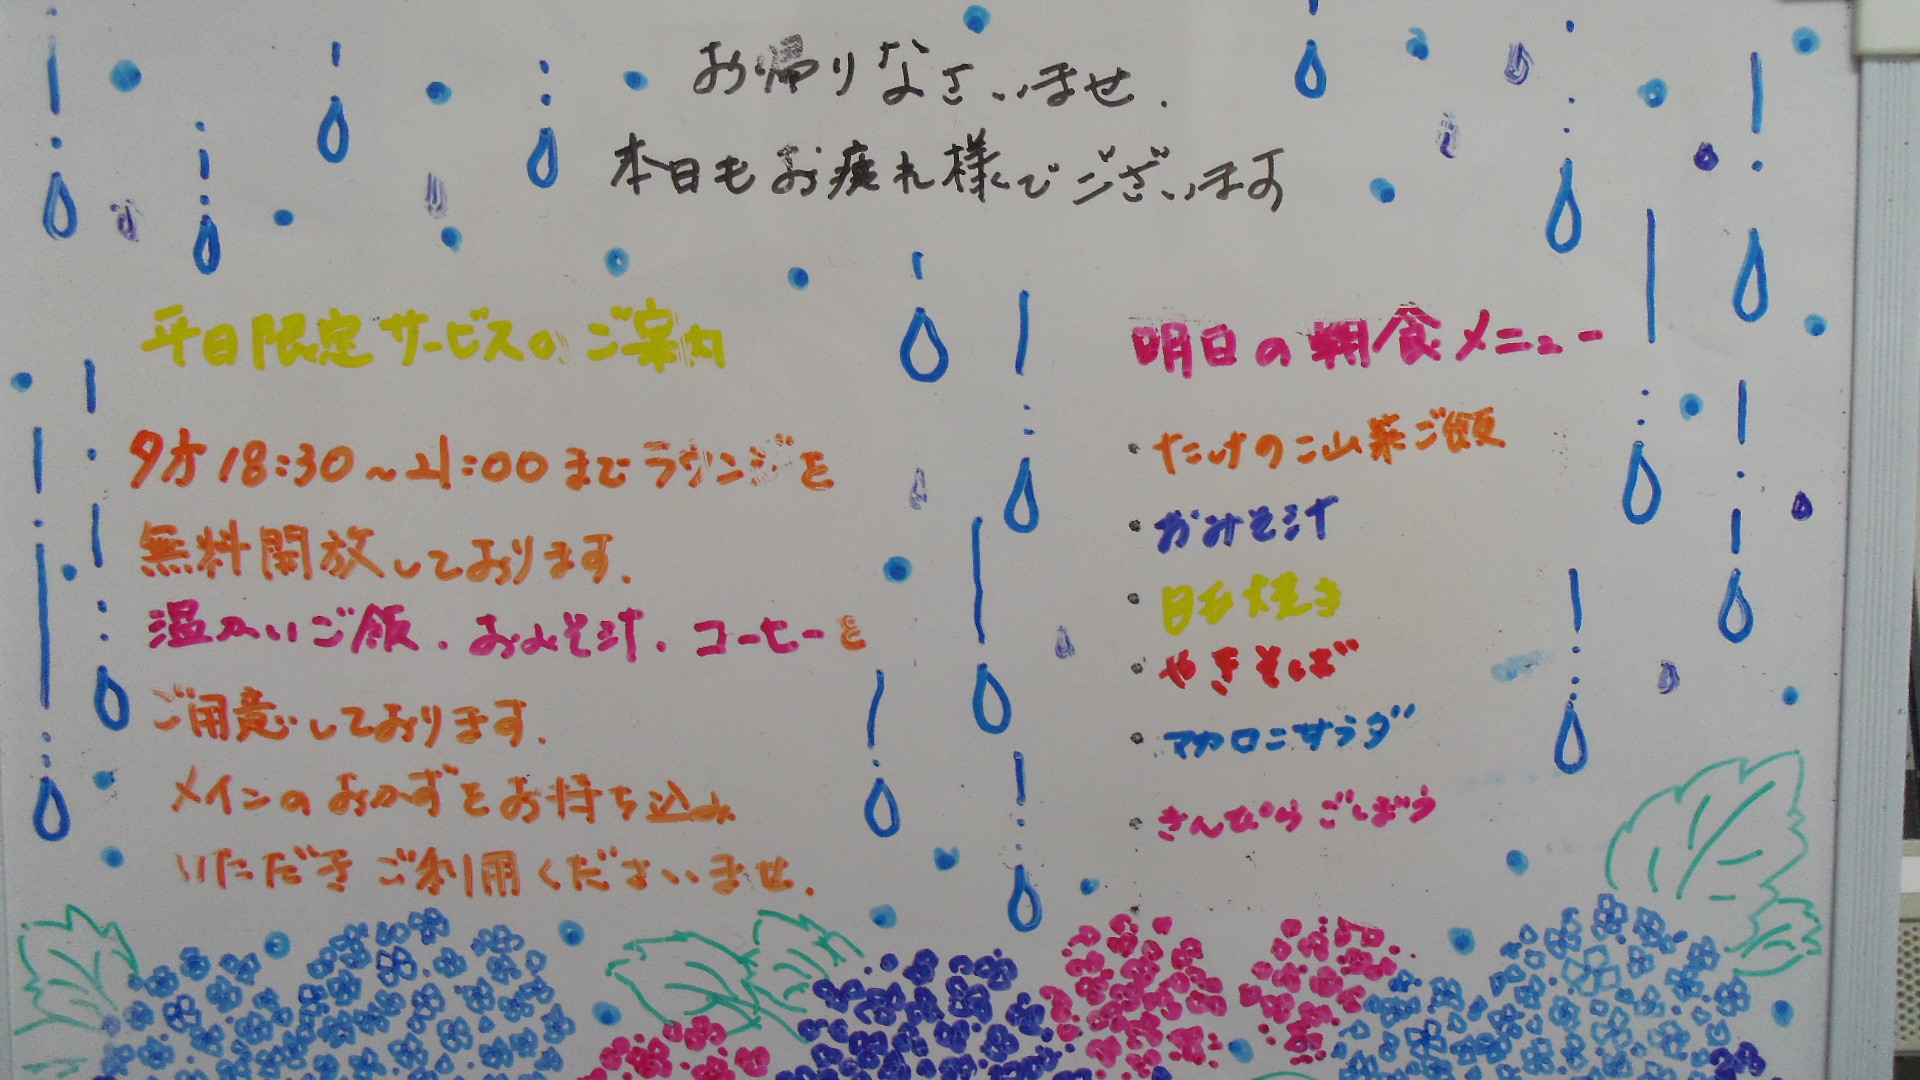 お帰りなさいませ.
本日もお疲れ様でございます
平日限定サービスのご案内
夕方18:30~21:00までラウンジを
無料開放しております.
温かいご飯.おみそ汁.コーヒーを
ご用意しております.
メインのおかずをお持ち込み
いただきご利用くださいませ.
明日の朝食メニュー
・たけのこ山菜ご飯
・おみそ汁
・目玉焼き
・やきそば
・マカロニサラダ
・きんぴらごぼう